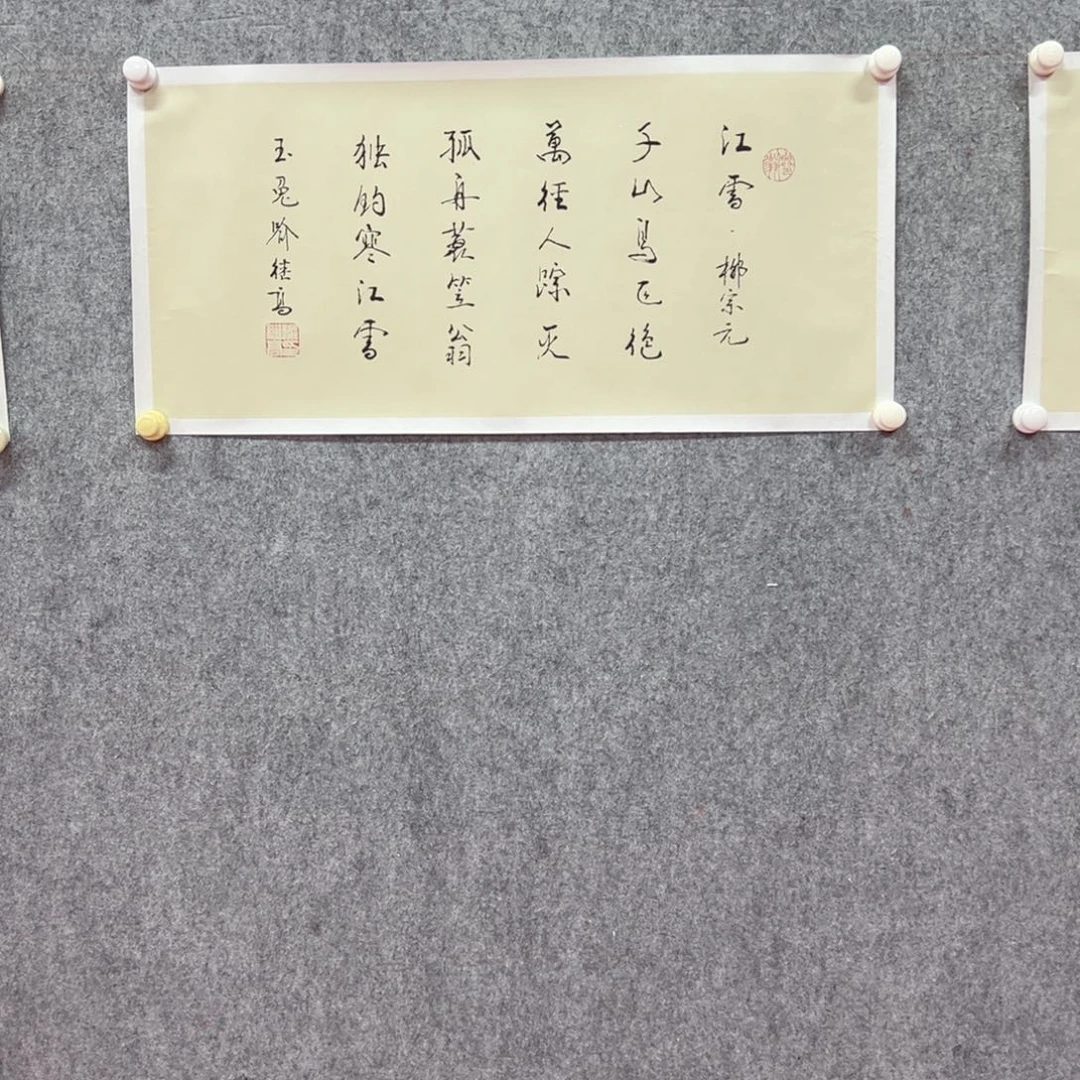 江雪·柳宗元
千山鳥飞绝
萬径人踪灭
孤舟蓑笠翁
独钓寒江雪
玉兔